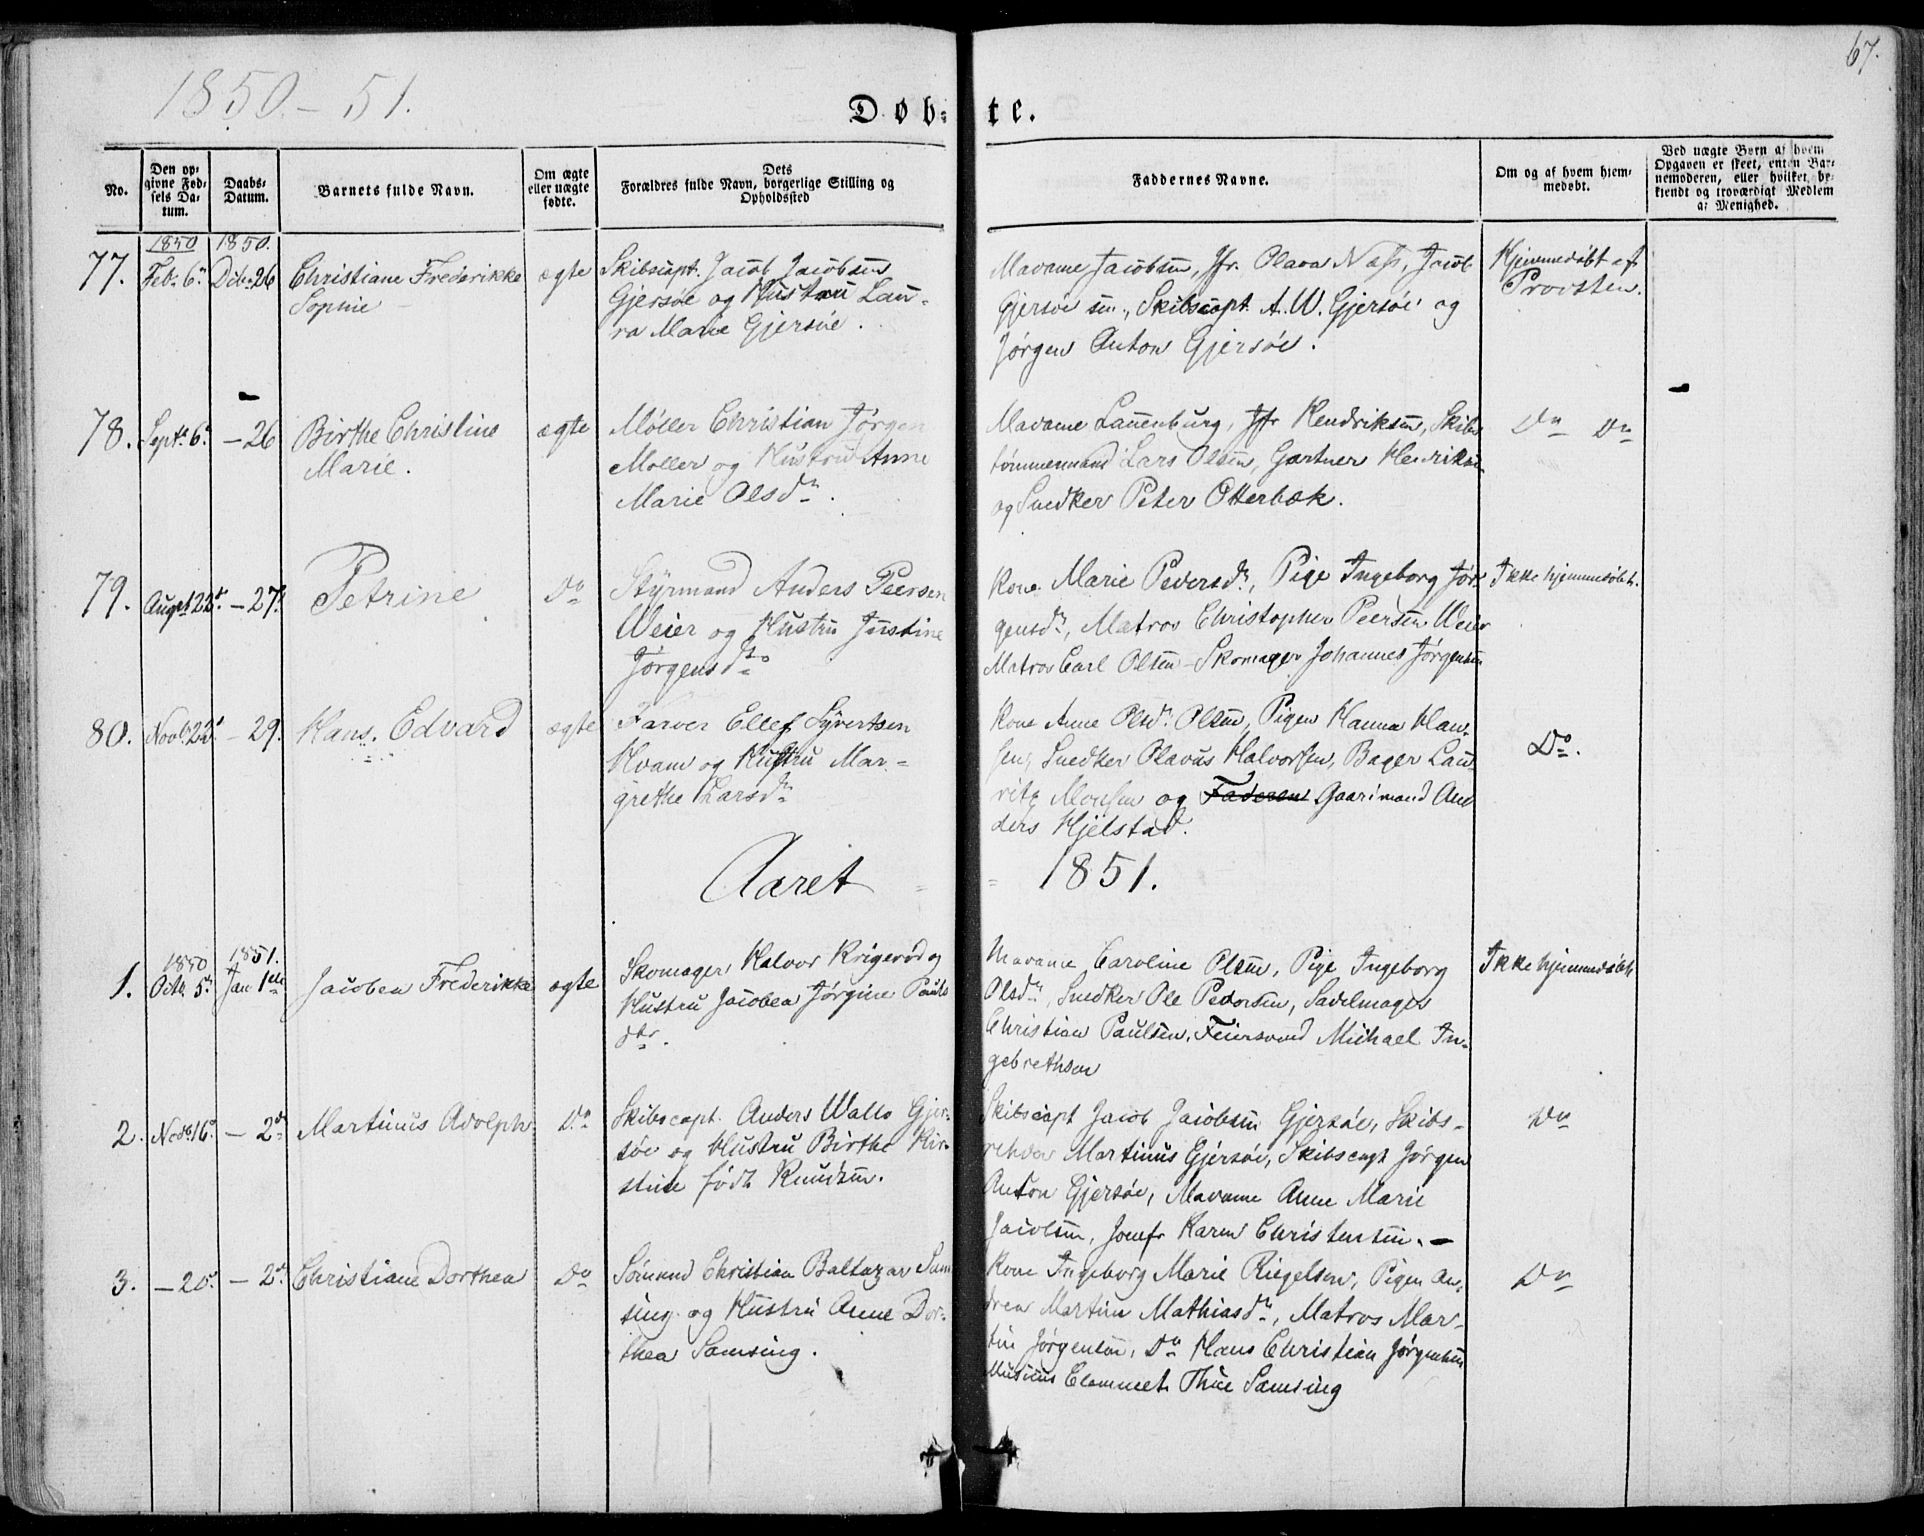 67.
1850.-51.
Døb-te.
No.
Den op-
givne Fød-
sels Da-
tum.
Daabs-
Datum.
Barnets fulde Navn.
Om ægte
eller uægte
fødte.
Dets
Forældres fulde Navn, borgerlige Stilling og
Opholdssted
Faddernes Navne.
Om og af hvem hjem-
medøbt.
Ved uægte Børn af hvem
Opgaven er skeet, enten Bar-
nemoderen, eller hvilket be-
kjendt og troværdigt Medlem
af Menighed.
1850 1850.
77.
Feb. 6
Dcb. 26
Christiane Frederikke
Sophie
ægte
Skibscapt. Jacob Jacobsen
Gjersøe og Hustru Lau-
ra Marie Gjersøe.
Madame Jacobsen, Jfr. Olava Næss, Jacob
Gjersøe sen., Skibscapt. A. W. Gjersøe og
Jørgen Anton Gjersøe.
Hjemmedøbt af
Provsten.
78.
Sept. 6
- 26
Birthe Christine
Marie.
ægte
Møller Christian Jørgen
Møller og Hustru Anne
Marie Olsdr.
Madame Lauenburg, Jfr Hendriksen, Skibs
tømmermand Lars Olsen, Gartner Henriksen
og Snedker Peter Otterbæk.
Do Do
79.
Augst 22
- 27
Petrine
Do
Styrmand Anders Peersen
Weier og Hustru Justine
Jørgensdr.
Kone Marie Pedersdr, Pige Ingeborg Jør-
gensdr, Matros Christopher Peersen Weier
Matros Carl Olsen - Skomager Johannes Jørgensen
Ikke hjemmedøbt.
80.
Novb 22
- 29.
Hans. Edvard
ægte
Farver Ellef Syvertsen
Hvam og Hustru Mar-
grethe Larsdr
Kone Anne Olsdr Olsen, Pigen Hanna Han-
sen, Snedker Olavus Halvorsen, Bager Lau-
ritz Monsen og Faderen Gaardmand An
ders Hjelstad.
Do.
Aaret 1851.
1850 1851.
1.
Octb 5
Jan 1ste
Jacobea Frederikke
ægte
Skomager Halvor Krigerød og
Hustru Jacobea Jørgine Pauls
dtr.
Madame Caroline Olsen, Pige Ingeborg
Olsdr, Snedker Ole Pedersen, Sadelmager
Christian Paulsen, Feiersvend Michael In-
gebrethsen
Ikke hjemmedøbt
2.
Novb 16
- 2
Martinus Adolph
Do
Skibscapt. Anders Wallo Gjer-
søe og Hustru Birthe Kir-
stine født Knudsen.
Skibscapt Jacob Jacobsen Gjersøe, Skibs-
reder Martinus Gjersøe, Skibscapt Jørgen
Anton Gjersøe, Madame Anne Marie
Jacobsen, Jomfr Karen Christensen. -
Do
3.
- 20
- 2
Christiane Dorthea
Do
Sømand Christian Baltazar Sam
sing og Hustru Anne Dor-
thea Samsing.
Kone Ingeborg Marie Riegelsen, Pigen An-
drea Martine Mathiasdr, Matros Mar-
tin Jørgensen, Do Hans Christian Jørgensen
Musicus Clemmet Thue Samsing
Do